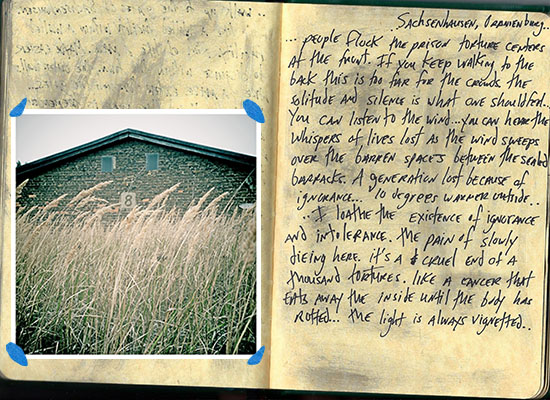 8
Sachsenhausen, Oranienburg..
... people flock the prison torture centers
at the front. If you keep walking to the
back this is too far for the crowds the
solitude and silence is what one should feel..
You can listen to the wind... you can hear the
whispers of lives lost as the wind sweeps
over the barren spaces between the sealed
barracks. A generation lost because of
ignorance... 10 degrees warmer outside..
... I loathe the existence of ignorance
and intolerance. The pain of slowly
dieing here. it's a cruel end of a
thousand tortures. like a cancer that
eats away the inside until the body has
rotted... the light is always vignetted..